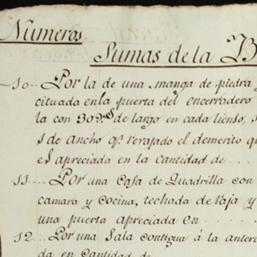 Numeros Sumas de la B
10.. Por la de una manga de piedra
cituada en la puerta del encerradero
la con 50 v.s de largo en cada lienso, s
s de ancho q.e revajado el demerito q
el apreciada en la cantidad de . . .
11... Por una Casa de Quadrilla con
camara y cocina, techada de taja y
una puerta apreciada en . . . . .
12.. Por una Sala contigua á la anter
da en Cantidad de